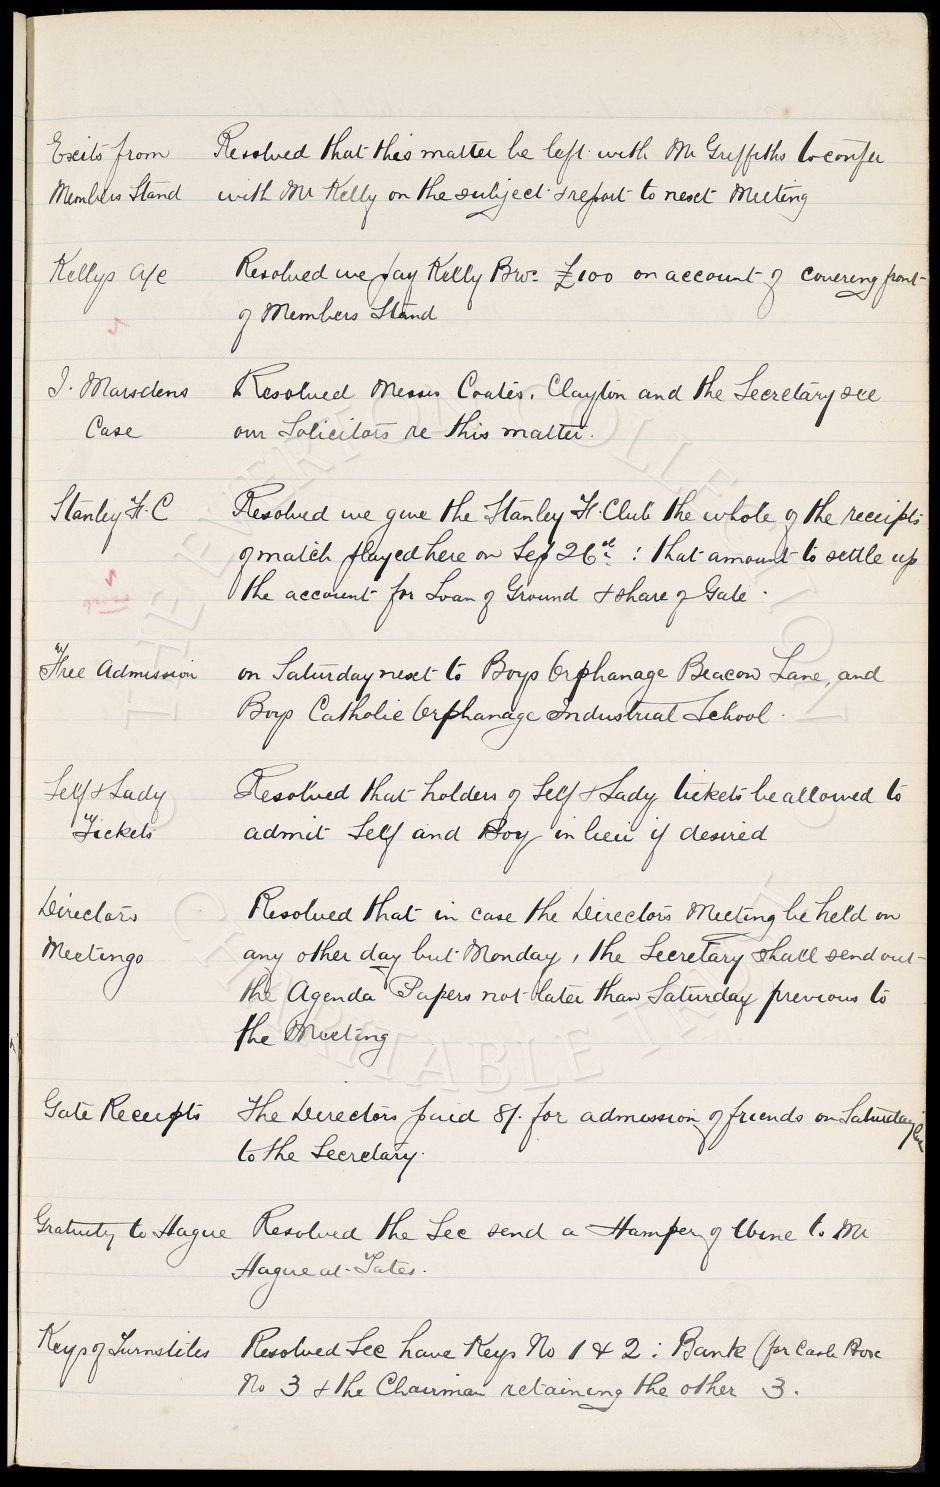 Exits from Resolved that this matter be left with Mr Griffiths to confer
Members Stand with Mr Kelly on the subject & report to next Meeting
Kellys a/c Resolved we pay Kelly Bros £100 on account of covering front
of Members Stand
J. Marsdens Resolved Messrs Coates, Clayton and the Secretary see
Case our Solicitors re this matter.
Stanley F.C Resolved we give the Stanley F. Club the whole of the receipts
of match played here on Sep 26th : that amount to settle up
the account for Loan of Ground & share of Gate.
Free Admission on Saturday next to Boys Orphanage Beacon Lane, and
Boys Catholic Orphanage Industrial School.
Self & Lady Resolved that holders of Self & Lady tickets be allowed to
Tickets admit Self and Boy in lieu if desired
Directors Resolved that in case the Directors Meeting be held on
Meetings any other day but Monday, the Secretary shall send out
the Agenda Papers not later than Saturday previous to
the Meeting
Gate Receipts The Directors paid 8/- for admission of friends on Saturday
to the Secretary.
Gratuity to Hague Resolved the Sec send a Hamper of Wine to Mr
Hague at Gates.
Keys of Turnstiles Resolved Sec have Keys No 1 & 2 : Bank (for Cash Box
No 3 & the Chairman retaining the other 3.
THE EVERTON COLLECTION
CHARITABLE TRUST